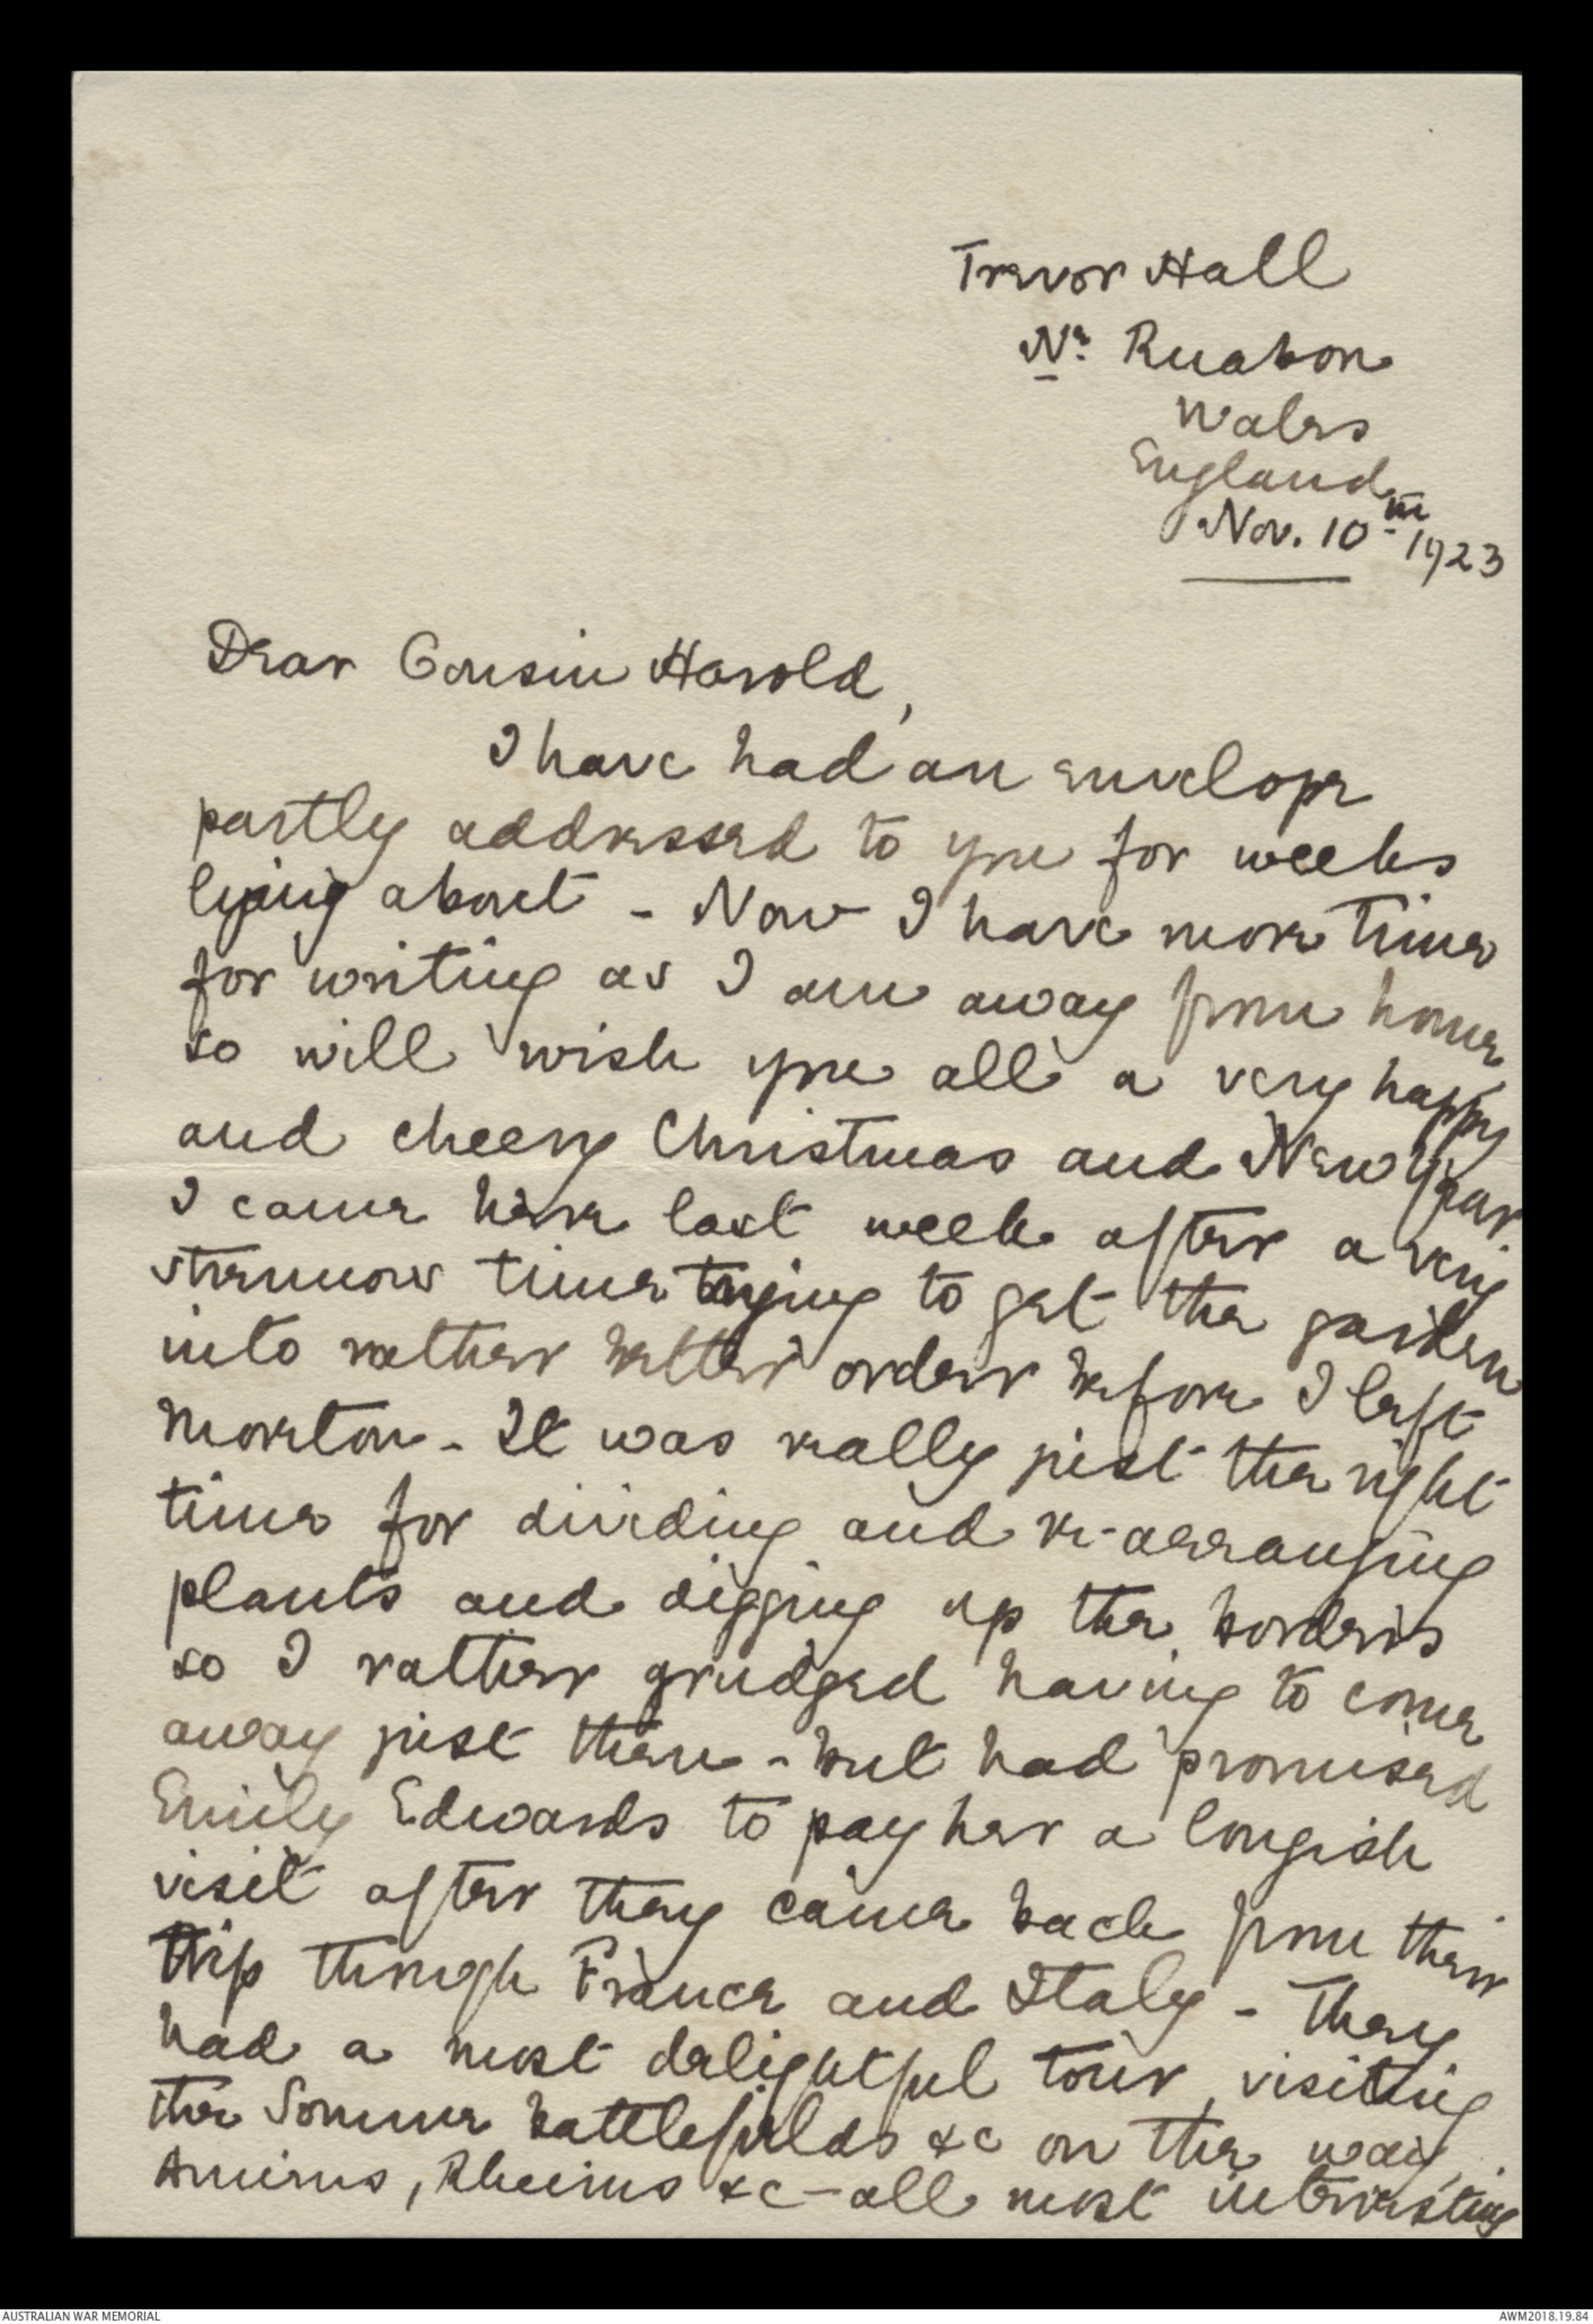 Trevor Hall
Nr. Ruabon
Wales
England
Nov. 10th 1923
Dear Cousin Harold,
I have had an envelope
partly addressed to you for weeks
lying about - Now I have more time
for writing as I am away from home
so will wish you all a very happy
and cheery Christmas and New Year
I came here last week after a very
strenuous time trying to get the garden
into rather better order before I left
Moreton - It was really just the right
time for dividing and re-arranging
plants and digging up the borders
so I rather grudged having to come
away just then - but had promised
Emily Edwards to pay her a longish
visit after they came back from their
trip through France and Italy - They
had a most delightful tour, visiting
the Somme battlefields &c on the way,
Amiens, Rheims &c - all most interesting
AUSTRALIAN WAR MEMORIAL
AWM2018.19.84